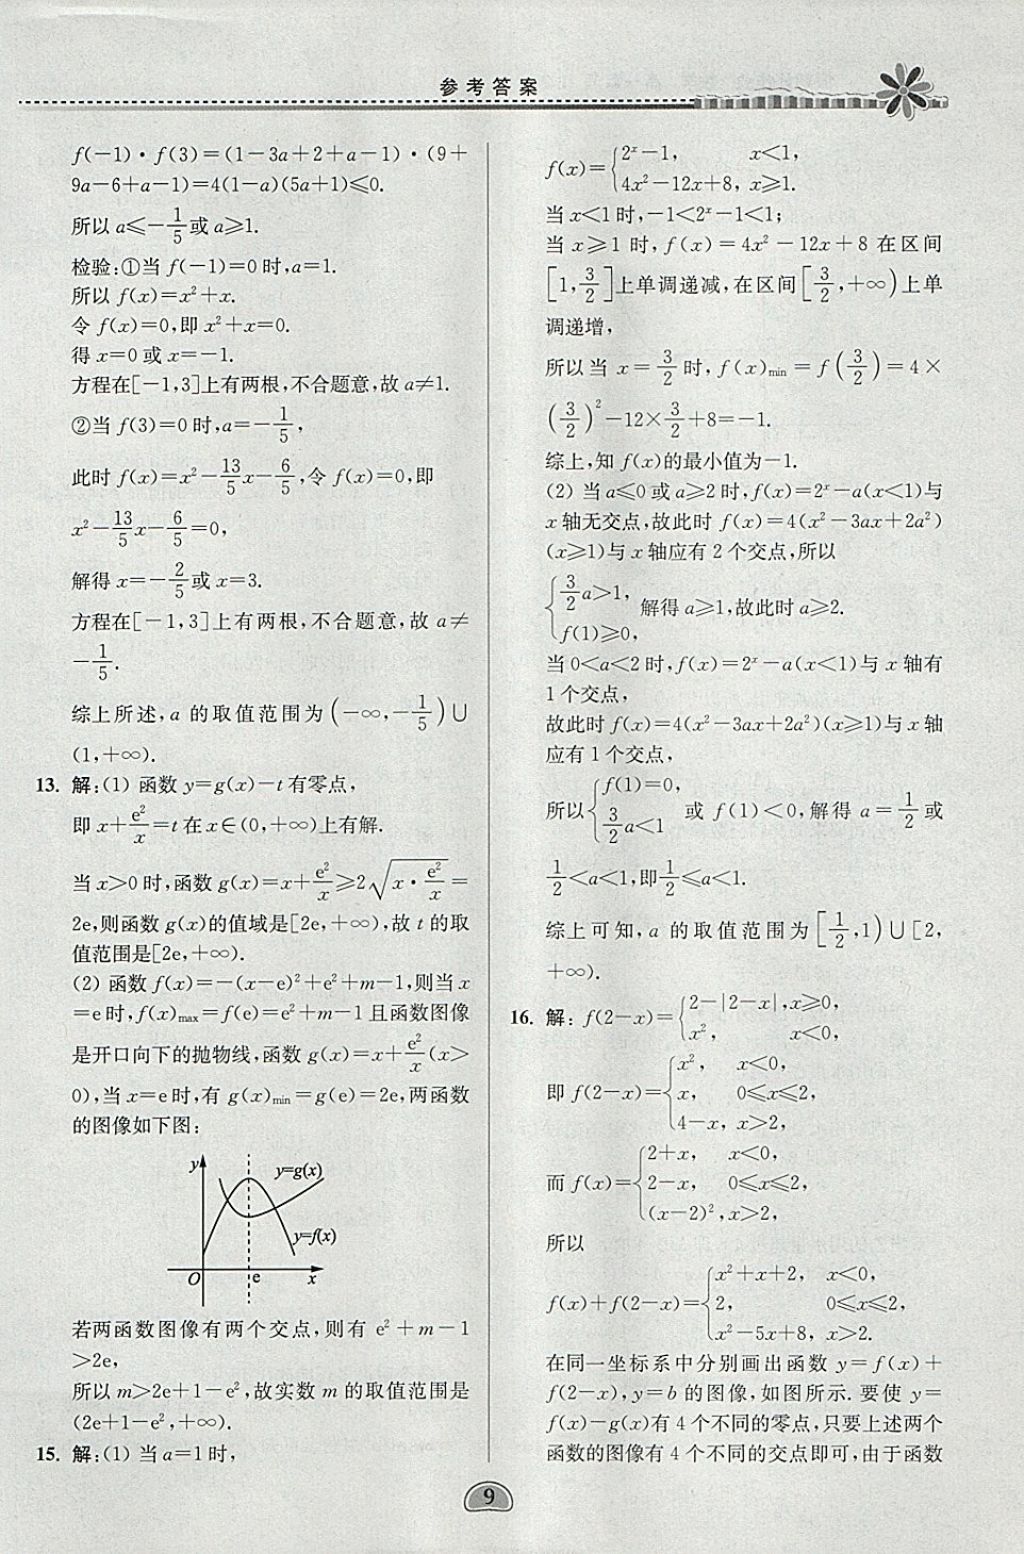 参考答案
f(-1)·f(3)=(1-3a+2+a-1)·(9+
9a-6+a-1)=4(1-a)(5a+1)≤0.
所以a≤-1/5或a≥1.
检验:①当f(-1)=0时,a=1.
所以f(x)=x²+x.
令f(x)=0,即x²+x=0.
得x=0或x=-1.
方程在[-1,3]上有两根,不合题意,故a≠1.
②当f(3)=0时,a=-1/5,
此时f(x)=x²-13/5x-6/5,令f(x)=0,即
x²-13/5x-6/5=0,
解得x=-2/5或x=3.
方程在[-1,3]上有两根,不合题意,故a≠
-1/5.
综上所述,a的取值范围为(-∞,-1/5)∪
(1,+∞).
13. 解:(1) 函数y=g(x)-t有零点,
即x+e²/x=t在x∈(0,+∞)上有解.
当x>0时,函数g(x)=x+e²/x≥2√(x·e²/x)=
2e,则函数g(x)的值域是[2e,+∞),故t的取
值范围是[2e,+∞).
(2) 函数f(x)=-(x-e)²+e²+m-1,则当x
=e时,f(x)max=f(e)=e²+m-1且函数图像
是开口向下的抛物线,函数g(x)=x+e²/x(x>
0),当x=e时,有g(x)min=g(e)=2e,两函数
的图像如下图:
y
y=g(x)
y=f(x)
O
e
x
若两函数图像有两个交点,则有e²+m-1
>2e,
所以m>2e+1-e²,故实数m的取值范围是
(2e+1-e²,+∞).
15. 解:(1) 当a=1时,
f(x)={2ˣ-1, x<1,
4x²-12x+8, x≥1.
当x<1时,-1<2ˣ-1<1;
当x≥1时,f(x)=4x²-12x+8在区间
[1,3/2]上单调递减,在区间[3/2,+∞)上单
调递增,
所以当x=3/2时,f(x)min=f(3/2)=4×
(3/2)²-12×3/2+8=-1.
综上,知f(x)的最小值为-1.
(2) 当a≤0或a≥2时,f(x)=2ˣ-a(x<1)与
x轴无交点,故此时f(x)=4(x²-3ax+2a²)
(x≥1)与x轴应有2个交点,所以
{3/2a>1,
f(1)≥0, 解得a≥1,故此时a≥2.
当0<a<2时,f(x)=2ˣ-a(x<1)与x轴有
1个交点,
故此时f(x)=4(x²-3ax+2a²)(x≥1)与x轴
应有1个交点,
所以{f(1)=0,
3/2a<1 或f(1)<0,解得a=1/2或
1/2<a<1,即1/2≤a<1.
综上可知,a的取值范围为[1/2,1)∪[2,
+∞).
16. 解: f(2-x)={2-|2-x|,x≥0,
x², x<0,
即f(2-x)={x², x<0,
x, 0≤x≤2,
4-x, x>2,
而f(x)={2+x, x<0,
2-x, 0≤x≤2,
(x-2)²,x>2,
所以
f(x)+f(2-x)={x²+x+2, x<0,
2, 0≤x≤2,
x²-5x+8, x>2.
在同一坐标系中分别画出函数y=f(x)+
f(2-x),y=b的图像,如图所示. 要使y=
f(x)-g(x)有4个不同的零点,只要上述两个
函数的图像有4个不同的交点即可,由于函数
9